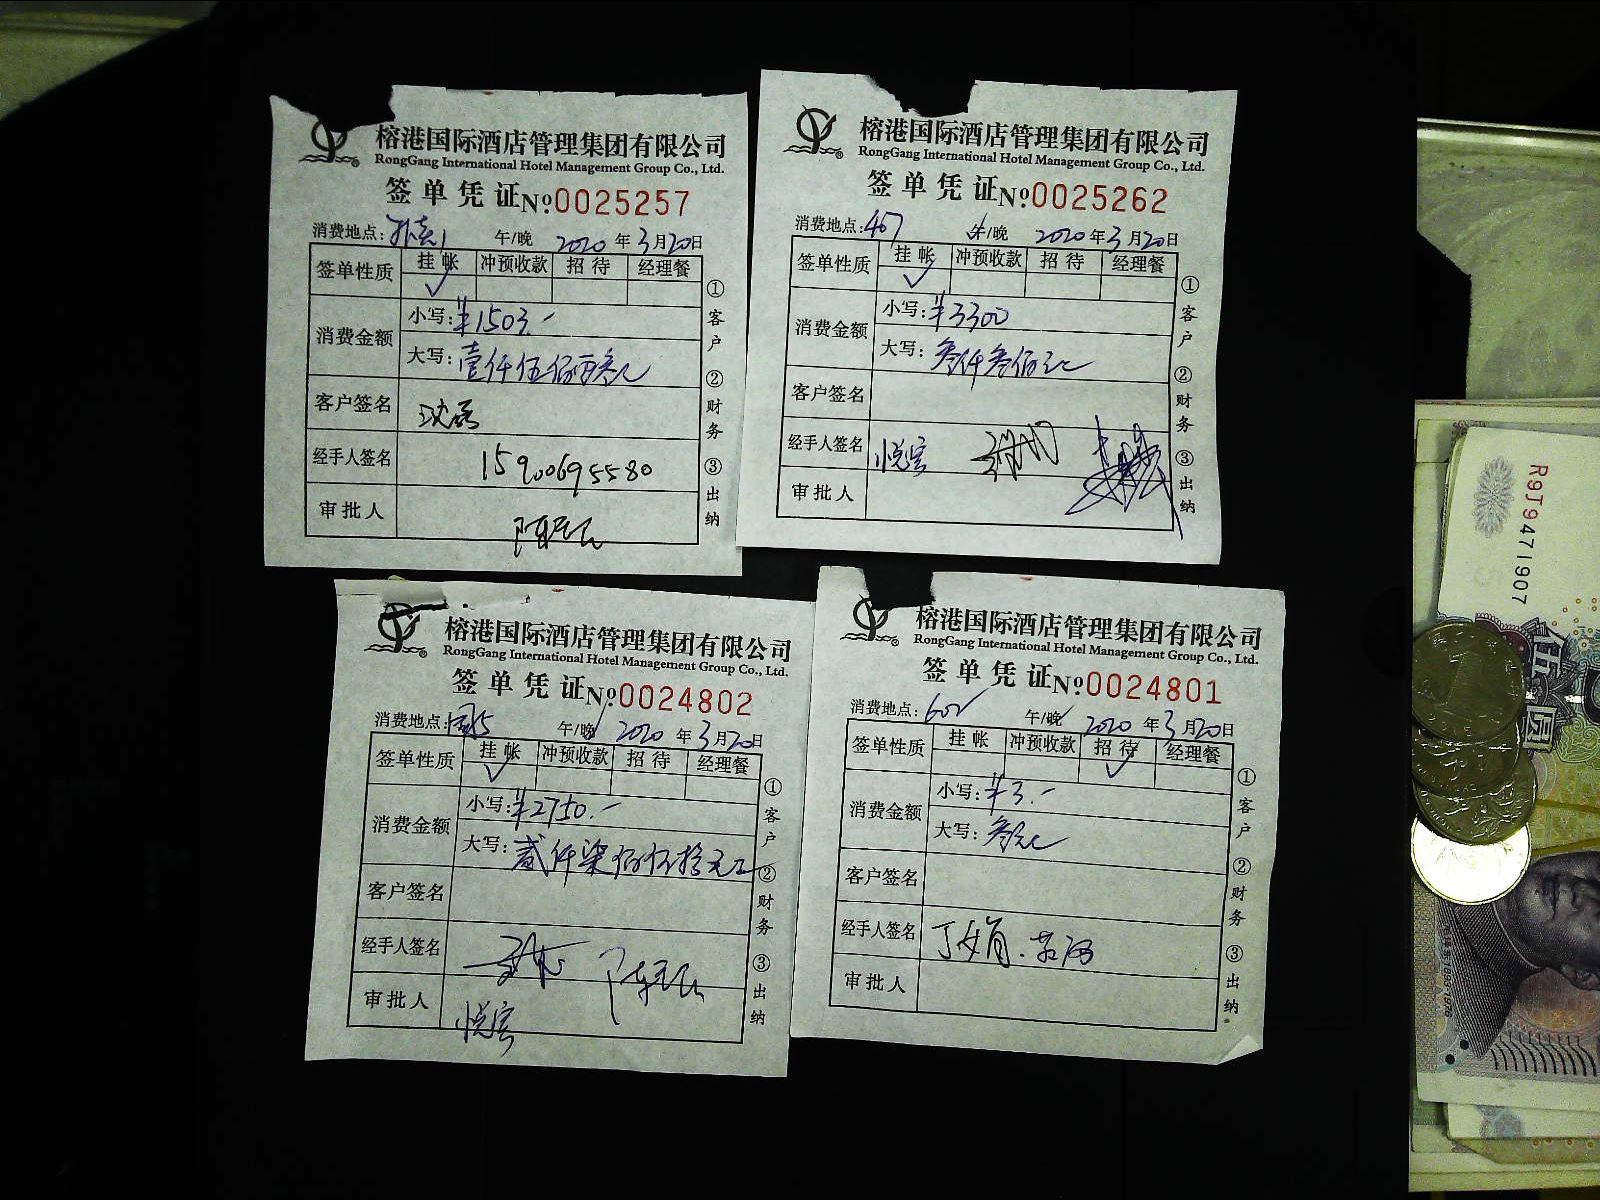 榕港国际酒店管理集团有限公司
RongGang International Hotel Management Group Co., Ltd.
签单凭证 №0025257
消费地点: 午/晚 2020年3月20日
签单性质 挂帐 冲预收款 招待 经理餐
✓
消费金额 小写:¥1503.-
大写:壹仟伍佰零叁元
客户签名 沈磊
经手人签名 15900695580
审批人
①客户 ②财务 ③出纳
榕港国际酒店管理集团有限公司
RongGang International Hotel Management Group Co., Ltd.
签单凭证 №0025262
消费地点:407 午/晚 2020年3月20日
签单性质 挂帐 冲预收款 招待 经理餐
✓
消费金额 小写:¥3300
大写:叁仟叁佰元
客户签名
经手人签名 悦宾
审批人
①客户 ②财务 ③出纳
榕港国际酒店管理集团有限公司
RongGang International Hotel Management Group Co., Ltd.
签单凭证 №0024802
消费地点: 午/晚 2020年3月20日
签单性质 挂帐 冲预收款 招待 经理餐
✓
消费金额 小写:¥2750.-
大写:贰仟柒佰伍拾元
客户签名
经手人签名
审批人 悦宾
①客户 ②财务 ③出纳
榕港国际酒店管理集团有限公司
RongGang International Hotel Management Group Co., Ltd.
签单凭证 №0024801
消费地点:602 午/晚 2020年3月20日
签单性质 挂帐 冲预收款 招待 经理餐
✓
消费金额 小写:¥3.-
大写:叁元
客户签名
经手人签名 丁文娟.
审批人
①客户 ②财务 ③出纳
R9J9471907
伍圆